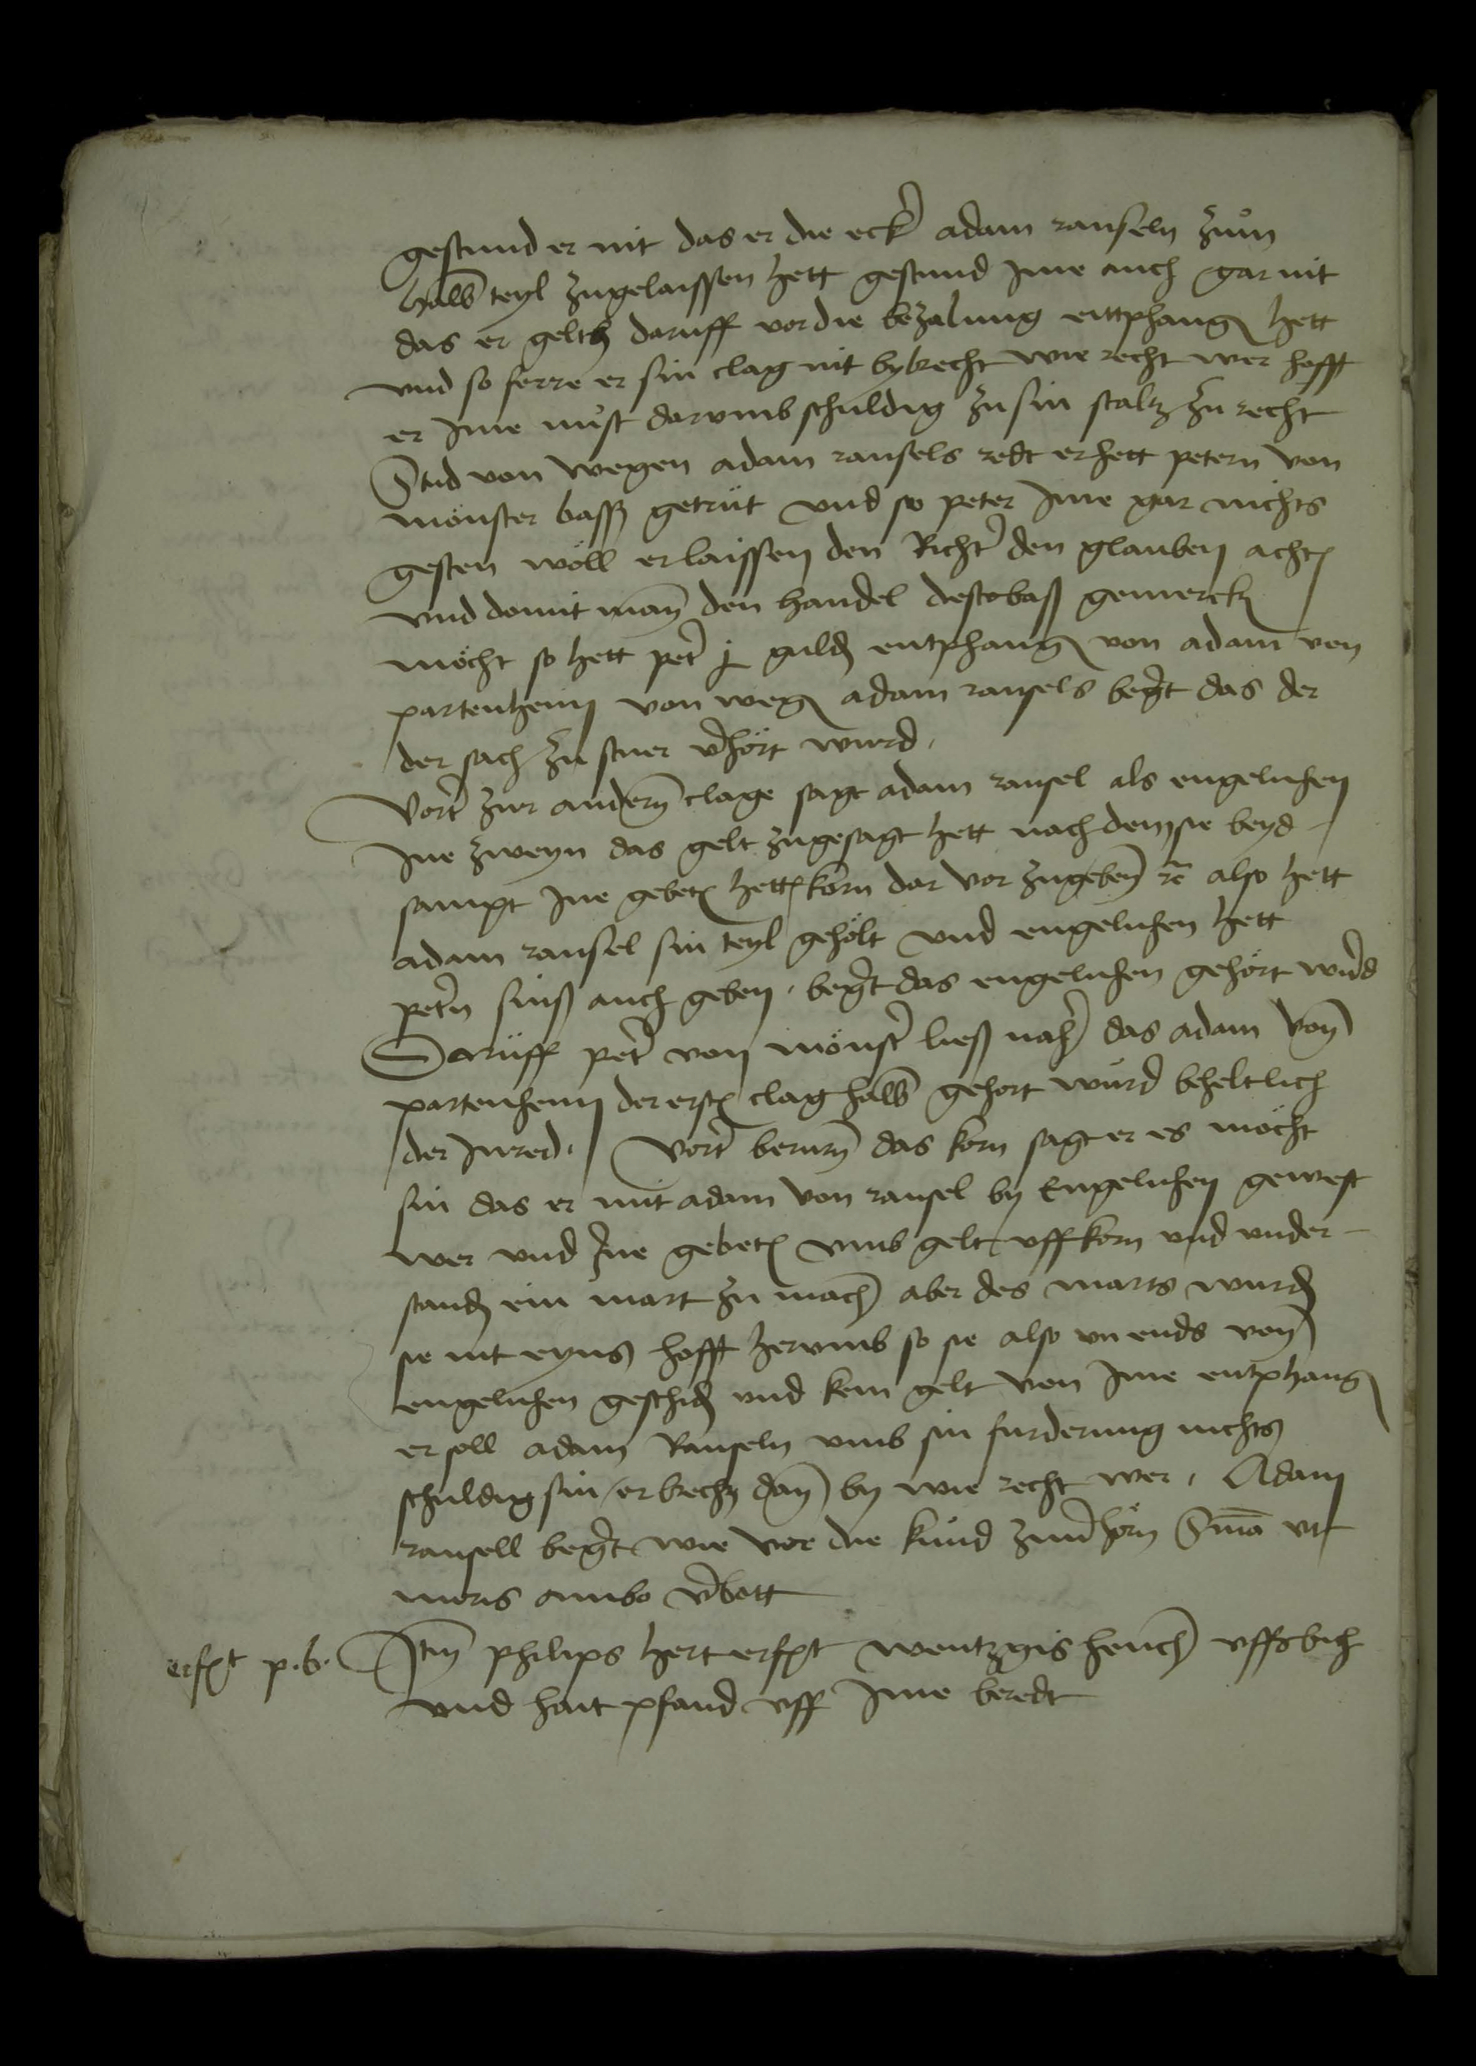 gestund er nit das er die eck' adam ranseln zum
halb teyl zugelaissen hett gestund Ime auch gar nit
das er geltz daruff vor die bezalung enttphang hett
vnd so ferre er sin clag nit bybrecht wie recht wer hofft
er Ime nust darvmb schuldig zu sin stalt zu recht
Stud von wegen adam ransels redt er hett petern von
mönster bass getrüt vnd so peter Ime gar nichts
gesten wöll er laissen den Richt' den glauben acht
vnd domit man den handel destobaß gemerck
möcht so hett pet' j guld entphang von adam von
partenheim von weg adam ransels beg't das der
der sach zu stuer v'hört wurd,
Vort' zur andern clage sagt adam ransel als engelnhen
Ine zweyn das gelt zugesagt hett nach dem sie beyd
sampt Ine gebet hett korn dar vor zugeben rc also hett
adam ransel sin teyl gehölt vnd engelnhen hett
pet'n sins auch geben, beg't das engelnhen gehört w'd
Daruff pet' von mönst' ließ nah' das adam von
partenheim der erst clag halb gehort wurd beheltlich
der Inred, Vort' berurn das korn sagt er es möcht
sin das er mit adam von ransel by Engelnhen gewest
wer vnd Ine gebet vmb gelt vff korn vnd vnder-
stand ein mart zu mach aber des marts wurd
sie nit eyns hofft hervmb so sie also vnends von
engelnhen geschid vnd kein gelt von Ime entphang
er soll adam Ranseln vmb sin furderung nichts
schuldig sin er brechts dan by wie recht wer, Adam
ransell beg't wie vor die kund zuu'horn S'ma vt
moris ambo v'bott
erf't p.b. Itm philips hert erf't wentzgis hench vffs bch
vnd hait pfand vff Ime beredt